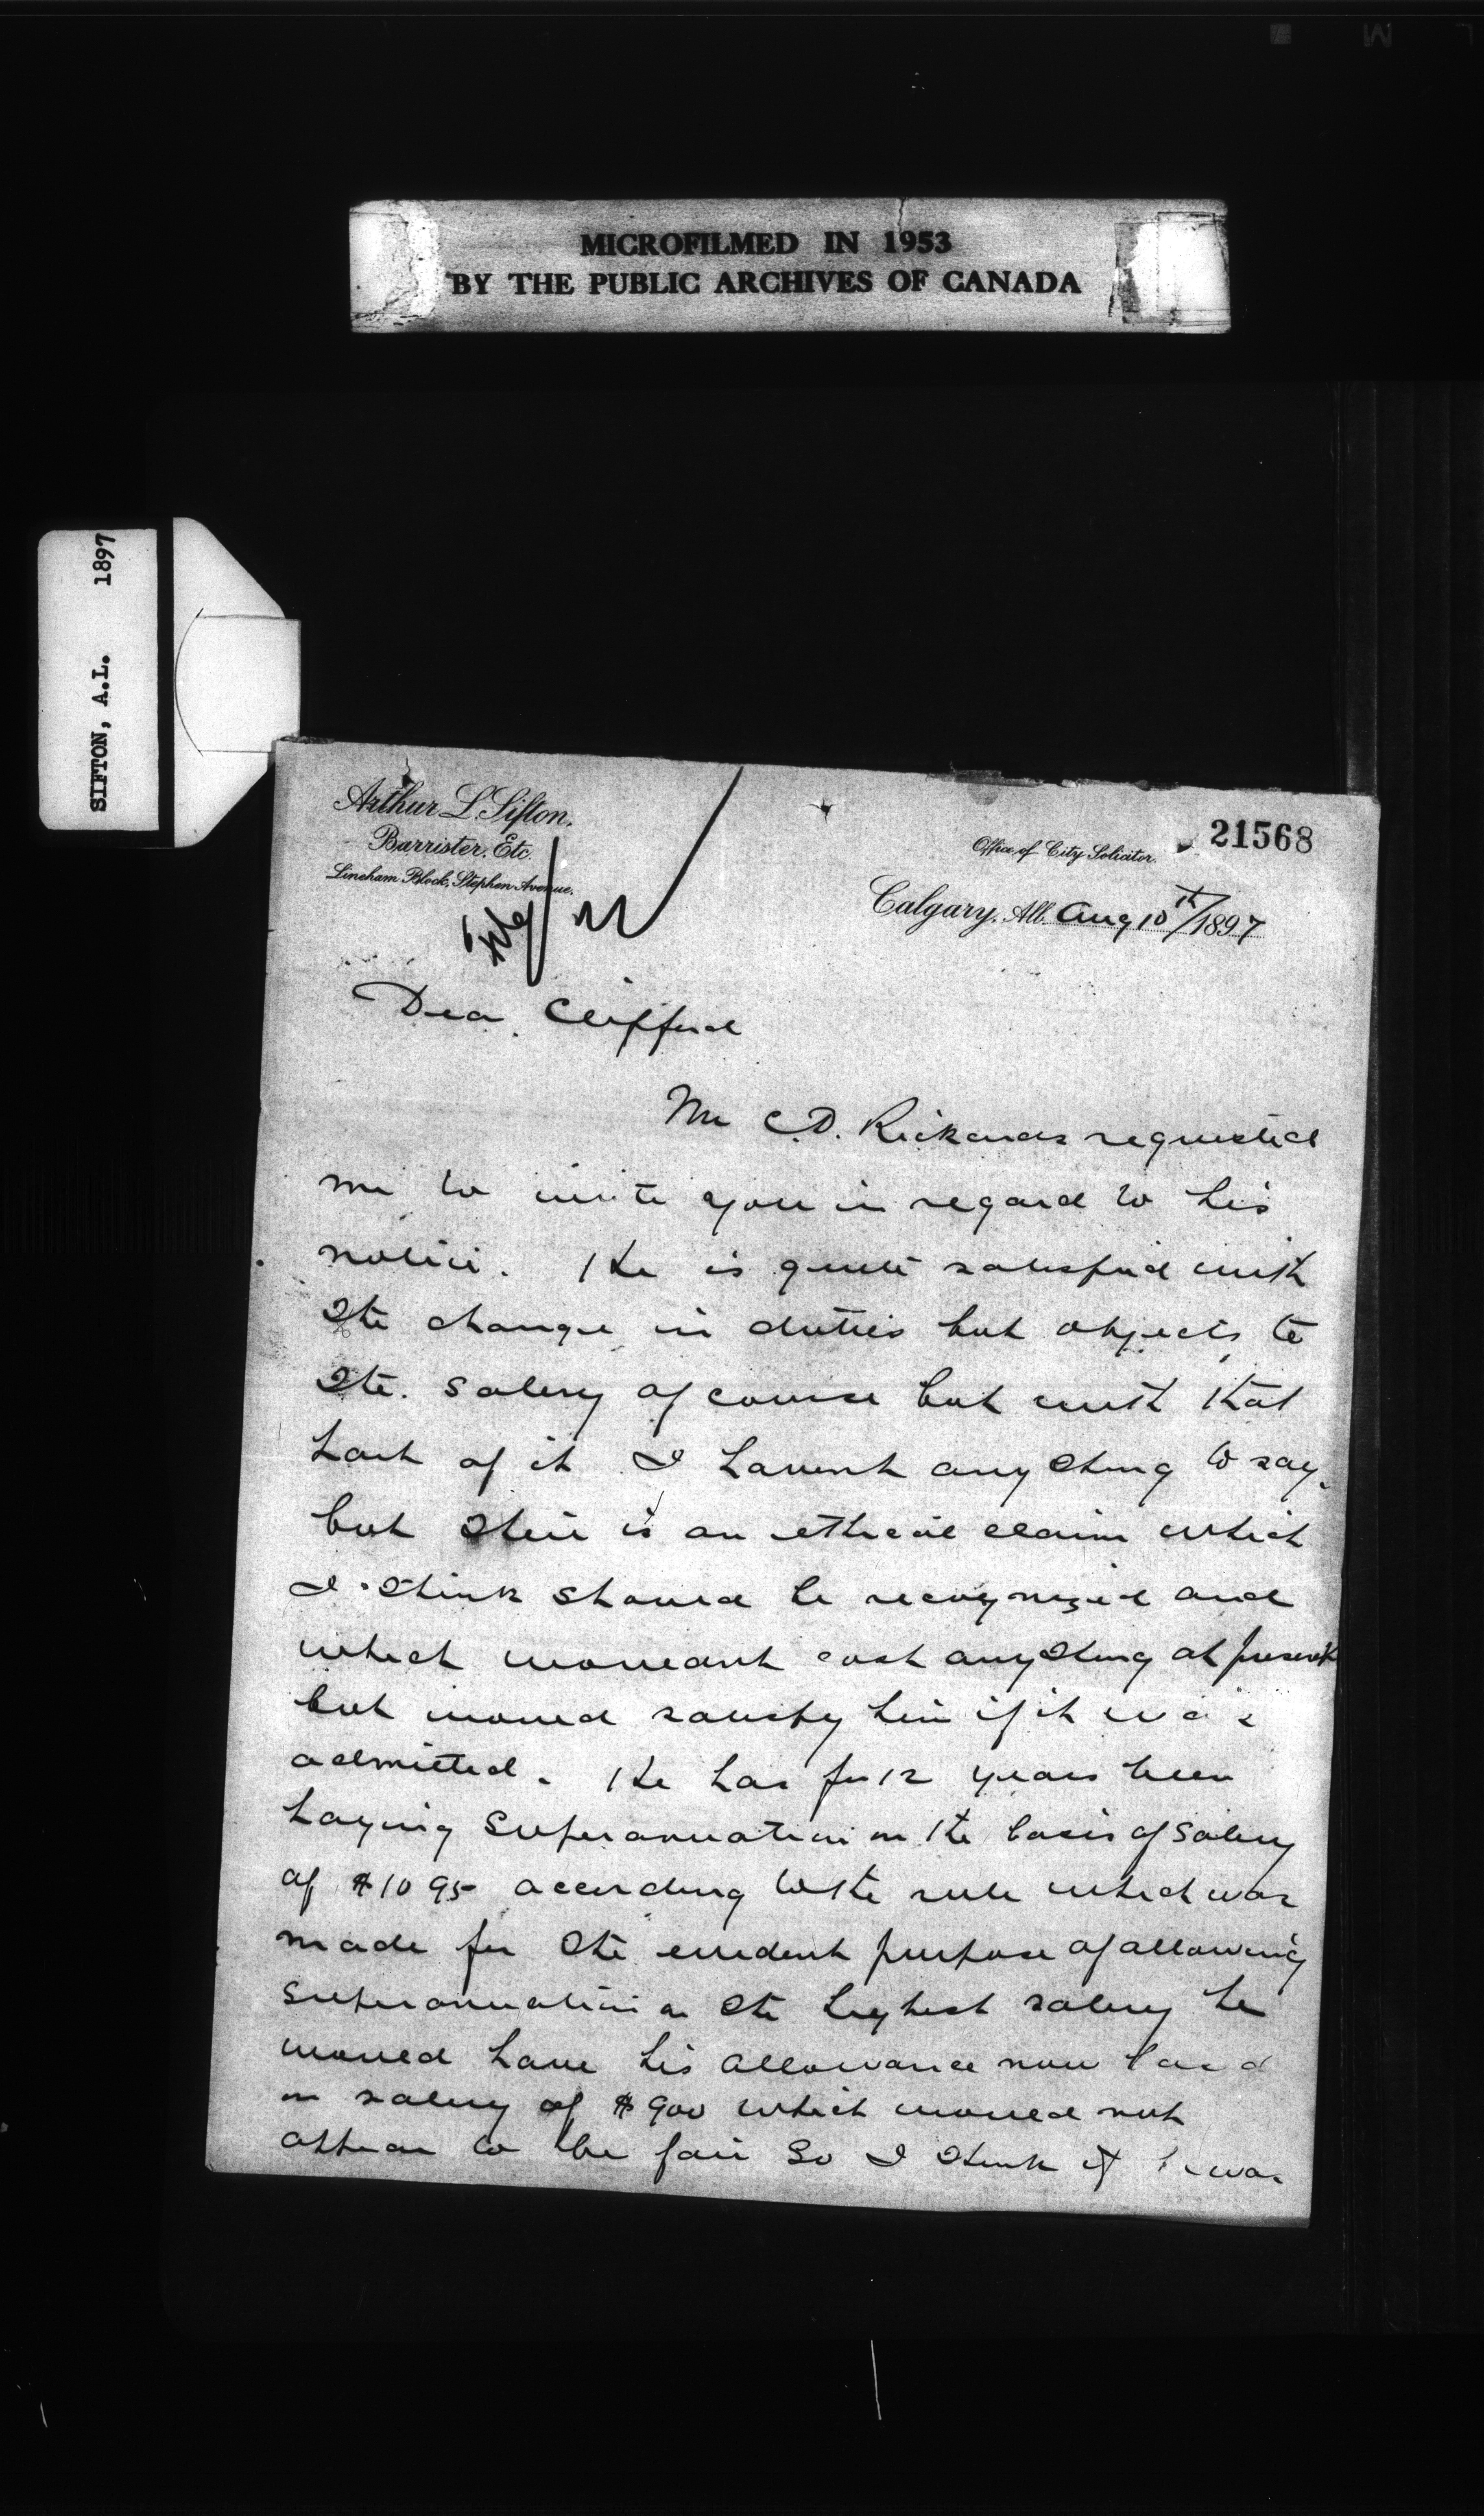 MICROFILMED IN 1953
BY THE PUBLIC ARCHIVES OF CANADA
SIFTON, A.L. 1897
Arthur L. Sifton.
Barrister, Etc.
Lineham Block, Stephen Avenue.
Office of City Solicitor.
21568
Calgary, Alb. Aug 10th/1897
Dear Clifford
Mr C.D. Rickards requested
me to write you in regard to his
notice. He is quite satisfied with
the change in duties but objects to
the salary of course but with that
part of it I havent anything to say.
but there is an claim which
I think should be recognized and
which wouldnt cost anything at present
but would satisfy him if it was
admitted. He has for 12 years been
paying Superannuation on the basis of salary
of $1095 according to the rule which was
made for the evident purpose of allowing
superannuation on the highest salary he
would have his allowance now
on salary of $900 which would not
appear to be fair So I think if he was